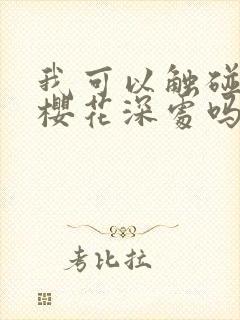 我可以触碰
樱花深处吗
考比拉